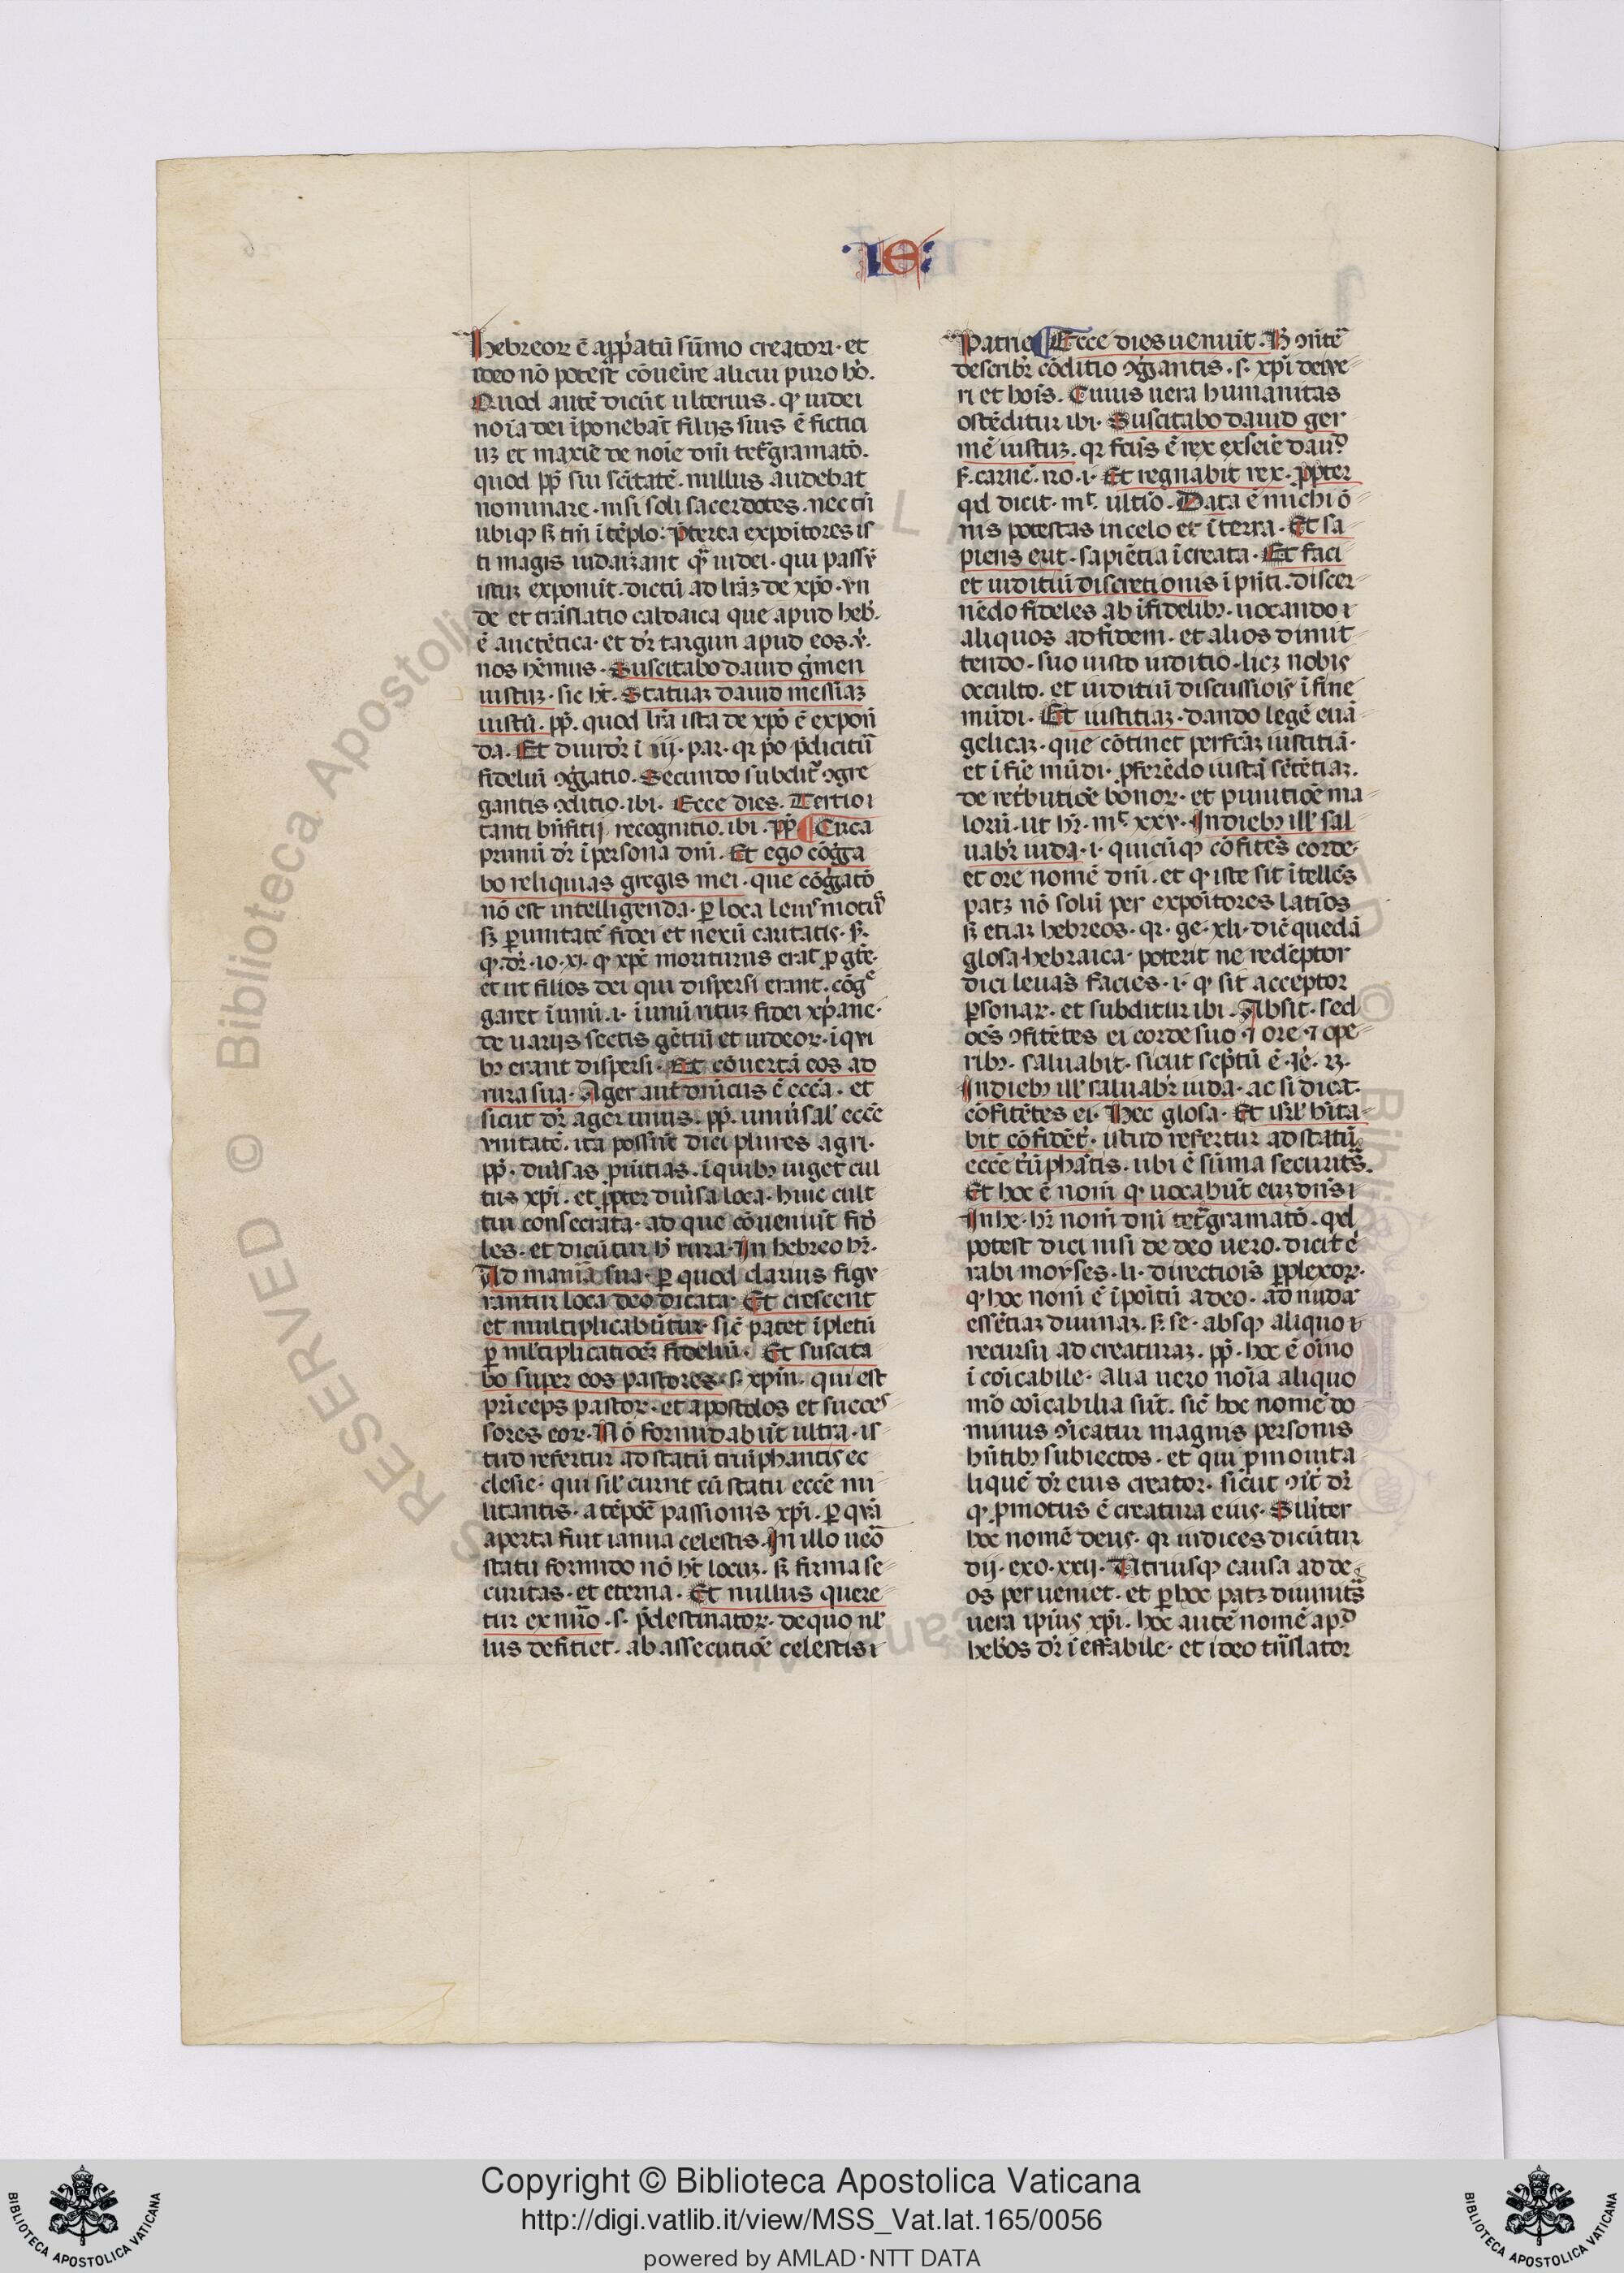 IE
hebreoꝝ ē app̃atū sūmo creatori · et
ideo nō potest cōuenire alicui puro hōi.
Quod autē dicūt ulterius . ꝙ iudei
noīa dei īponebāt filijs suis ē fictici
uꝫ et maxīe de noīe dnī tet̃gramatō.
quod pp̃ sui scītatē . nullus audebat
nominare . nisi soli sacerdotes . nec tn̄
ubiqꝫ sꝫ tm̄ ī tēplo : p̄terea expoitores is
ti magis iudaizant ꝙ̄ iudei . qui passū
istuꝫ exponūt . dictū ad lr̄aꝫ de xp̄o . vn
de et trāslatio caldaica que apud heb̓.
ē autētica · et dr̄ targun apud eos . v̓.
nos hēmus . Suscitabo dauid g̓men
iustuꝫ . sic hꝫ . Statuaꝫ dauid messiaꝫ
iustū . pp̃ . quod lr̄a ista de xp̄o ē exponē
da . Et diuidr̄ ī iij . par . qr̄ p̓o p̄dicitū
fideliū ꝯg̓gatio . Secundo subdit̃ ꝯgre
gantis ꝯditio . ibi . Ecce dies . Tertio ı
tanti bn̄fitij recognitio . ibi . pp̃ . Circa
primū dr̄ ī persona dnī . Et ego cōg̓ga
bo reliquias gregis mei . que cōg̓gatō
nō est intelligenda . ꝑ loca leuis motū
sꝫ ꝑ unitatē fidei et nexū caritatis . s̓.
ꝙ . dr̄ . io . xi . ꝙ xp̄c moriturus erat ꝓ gēte.
et ut filios dei qui dispersi erant . cōg̓e
garet ī unū . i . ī unū rituꝫ fidei xp̄iane .
de uarijs sectis gētiū et iudeoꝝ . ī qui
bꝫ erant dispersi . Et cōuertā eos ad
rura sua . Ager aut̄ dnīcus ē ecc̄a . et
sicut dr̄ ager unus . pp̃ . uniūsal̓ ecc̄e
vnitatē . ita possūt dici plures agri .
pp̃ . diūsas ꝓuītias . ī quibꝫ uiget cul
tus xp̄i . et ꝓpter diūsa loca . huic cult
tui consecrata . ad que cōueniūt fid̓
les . et dicūtur h̓ rura . In hebreo hr̄.
Ad mania sua . ꝑ quod clarius figu
rantur loca deo dicata . Et crescent
et multiplicabūtur . sic̄ patet īpletū
ꝑ ml̓tiplicatiōeꝫ fideliū . Et suscita
bo super eos pastores . s . xp̄m . qui est
prīceps pastoꝝ . et apostolos et succes
sores eoꝝ . Nō formidabūt ultra . is
tud refertur ad statū triūphantis ec
clesie . qui sil̓ currit cū statu ecc̄e mi
litantis . a tēpoē passionis xp̄i . ꝑ quā
aperta fuit ianua celestis . In illo uēo
statu formido nō hꝫ locuꝫ . sꝫ firma se
curitas . et eterna . Et nullus quere
tur ex nūo . s . p̄destinatoꝝ . de quo nl̓
lus defitiet . ab assecutiōe celestis ı
Patrie Ecce dies ueniūt . H̓ ꝯn̄tē
describr̄ cōditio ꝯg̓gantis . s . xp̄i dei ue
ri et hoīs . Cuius uera humanitas
ostēditur ibi . Suscitabo dauid ger
mē iustuꝫ . qr̄ fcūs ē rex ex seīe dauid
s̓ . carnē . ro . i . Et regnabit rex . ꝓpter
qd̓ dicit . mt̓ . ultīo . Data ē michi ō
nis potestas in celo et ī terra . Et sa
piens erit . sapiētia īcreata . Et faci
et iuditiū discretionis ī pn̄ti . discer
nēdo fideles ab īfidelibꝫ . uocando ı
aliquos ad fidem . et alios dimit
tendo . suo iusto iuditio . licꝫ nobis
occulto . et iuditiū discussiois̄ ī fine
mūdi . Et iustitiaꝫ . dando legē euā
gelicaꝫ . que cōtinet perfcāꝫ iustitiā .
et ī fīe mūdi . ꝓferēdo iustā sētētiaꝫ .
de ret̓butiōe bonoꝝ . et punitiōe ma
lorū . ut hr̄ . mt̓ . xxv . In diebꝫ ill̓ sal
uabr̄ iuda . i . quicūqꝫ cōfitēs corde
et ore nomē dnī . et ꝙ iste sit ītellēs
patꝫ nō solū per expoītores latīos
sꝫ etiaꝫ hebreos . qr̄ . ge . xli . dic̄ quedā
glosa hebraica . poterit ne redēptor
dici leuās facies . i . ꝙ sit acceptor
ꝑsonaꝝ . et subditur ibi . Absit . sed
oēs ꝯfitētes ei corde suo . ⁊ ore . ⁊ ope
ribꝫ . saluabit . sicut scp̄tū ē . Je . 23 .
In diebꝫ ill̓ saluabr̄ iuda . ac si dicat .
cōfitētes ei . Hec glosa . Et isrl̓ hīta
bit cōfidēt̓ . istud refertur ad statū
ecc̄e t̓ūphātis . ubi ē sūma securits̄ .
Et hoc ē nom̄ ꝙ uocabūt euꝫ dn̄s ı
In he . hr̄ nom̄ dnī tet̃gramatō . qd̓
potest dici nisi de deo uero . dicit ē
rabi moyses . li . directiois̄ ꝑplexoꝝ .
ꝙ hoc nom̄ ē īpoītū a deo . ad nudā
essētiaꝫ diuinaꝫ . s̓ . se . absqꝫ aliquo ı
recursu ad creaturaꝫ . pp̃ . hoc ē oīno
īcoīcabile . alia uero noīa aliquo
mō coīcabilia sūt . sic̄ hoc nomē do
minus ꝯīcatur magnis personis
hn̄tibꝫ subiectos . et qui ꝓmouit a
liquē dr̄ eius creator . sicut ꝯit̓ dr̄
ꝙ ꝓmotus ē creatura eius . Siliter
hoc nomē deus . qr̄ iudices dicūtur
dij . exo . xxij . Utriusqꝫ causa ad de
os perueniet . et ꝑ hoc patꝫ diuinits̄
uera ipius xp̄i . hoc autē nomē apd̓
heb̓os dr̄ ī effabile . et ideo trāslator
Copyright © Biblioteca Apostolica Vaticana
http://digi.vatlib.it/view/MSS_Vat.lat.165/0056
powered by AMLAD·NTT DATA
BIBLIOTECA APOSTOLICA VATICANA
BIBLIOTECA APOSTOLICA VATICANA